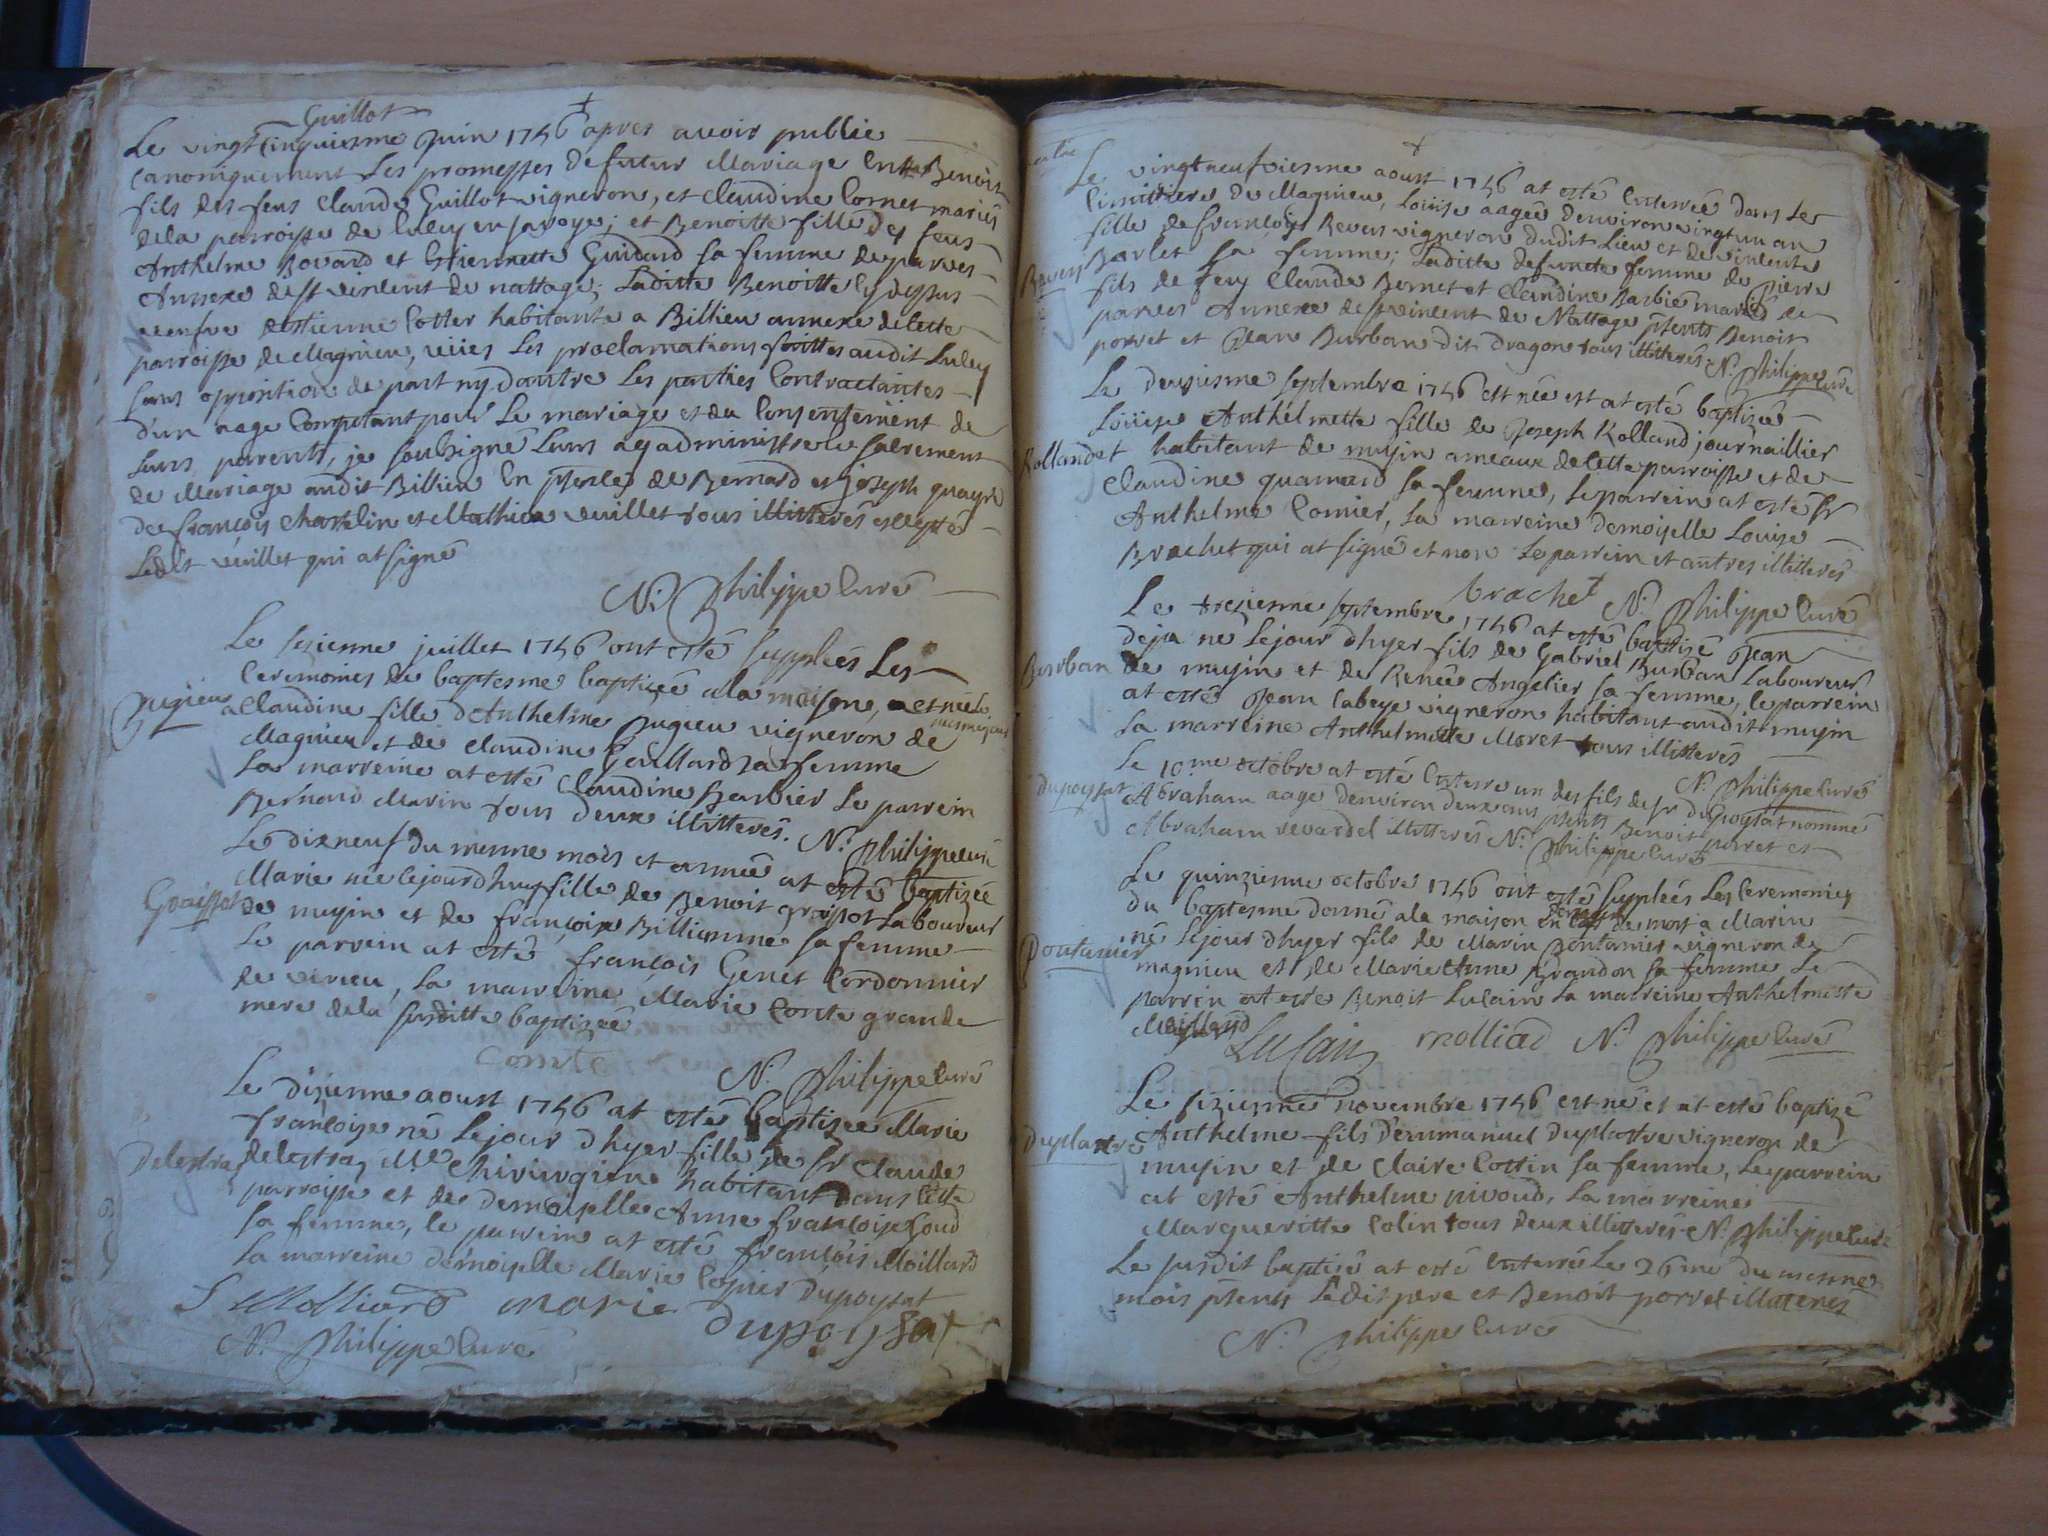 Guillot
Le vingt cinquiesme Juin 1746 apres avoir publie
Canoniquement Les promesses de futur Mariage Entre Benoit
fils des feus Claude Guillot vigneron, et Claudine Cornet mariés
de la parroisse de Lucey en Savoye; et Benoitte fille des feus
Anthelme Bovard et Estiennette Guidard sa femme de parves
Annexe de St vincent de nattage; Laditte Benoitte cy dessus
veufve destienne Cotter habitante a Billieu annexe de cette
parroisse de Magnieu, vües Les proclamations faittes audit Lucey
sans opposition de part ny d'autre Les parties Contractantes
d'un aage Competant pour Le mariage et du Consentement de
Leurs parents, je soubsigné Leurs ay administré Le sacrement
de Mariage audit Billieu En pñces de Bernard et joseph quayre
de françois Chastelin et Mathieu veuillet tous illitterés excepté
Ledit veuillet qui at signé
N. Philippe Curé
Le sezienne juillet 1746 ont esté supplées Les
Ceremonies du baptesme baptizée a la maison, et née le
mesme jour
Jugieu
a Claudine fille d'Anthelme Jugieu vigneron de
Magnieu et de Claudine Gaillard sa femme
La marreine at esté Claudine Barbier Le parrein
Bernard Marin tous deux illitterés. N. Philippe Curé
Le dixneuf du mesme mois et année at esté baptizée
Marie née Cejourdhuy fille de Benoit groissot Laboureur
Groissot
de musin et de françoise Billiemme sa femme
Le parrein at esté françois Genet Cordonnier
de virieu, La marreine Marie Conte grande
mere de la susditte baptizée
Comte
N. Philippe Curé
Le dizienne aoust 1746 at esté baptizée Marie
françoise né Lejour dhyer fille de Sr Claude
Delestraz
delestraz Me Chirurgien habitant dans Cette
parroisse et de demoiselle Anne françoise Goud
sa femme, le parrein at esté françois Moillard
La marreine demoiselle Marie Cosnier dupoysat
S Molliard marie dupoysat
N. Philippe Curé
Le vingtneufviesme aoust 1746 at esté Enterrée dans Le
Cimittiere de Magnieu, Louise aagée denviron vingt un an
fille de françois Bevens vigneron dudit Lieu et de vincente
Bevens
Barlet sa femme; Laditte defuncte femme de Pierre
fils de feu Claude Bernet et Claudine Barbier mariés de
parves Annexe de St vincent de Nattage pñents Benoit
porret et Jean Burban dit dragon tous illitterés. N. Philippe Curé
Le deuxiesme septembre 1746 est née et at esté baptizée
Loüise Anthelmette fille de Joseph Rolland journaillier
Rollandet
habitant de musin ameaux de cette parroisse et de
Claudine quamard sa femme, Le parrein at esté Sr
Anthelme Comier, La marreine demoiselle Louise
Brachet qui at signé et non Le parrein et autres illitterés
brachet N. Philippe Curé
Le trezienne septembre 1746 at esté baptizé Jean
deja né Lejour dhyer fils de Gabriel Burban Laboureur
Burban
de musin et de Renée Angelier sa femme, le parrein
at esté Jean Cabeye vigneron habitant audit musin
La marreine Anthelmette Moret tous illitterés
N. Philippe Curé
Le 10me octobre at esté Enterre un des fils de Sr duPoysat nommé
dupoysat
Abraham aagé denviron deux ans pñents Benoit porret et
Abraham revardel illitterés N. Philippe Curé
Le quinzienne octobre 1746 ont esté supplées Les Ceremonies
du baptesme donné a la maison en Cas de mort a Marin
né Lejour dhyer fils de Marin Pontanier vigneron de
Pontanier
magnieu et de Marie Anne Brandon sa femme Le
parrein at esté Benoit Lucain La marreine Anthelmette
Maillard
Lucain molliard N. Philippe Curé
Le sizienne novembre 1746 est né et at esté baptizé
Anthelme fils d'emmanuel duplastre vigneron de
duplastre
musin et de Claire Cottin sa femme, Le parrein
at esté Anthelme nivoud, La marreine
Margueritte Colin tous deux illitterés N. Philippe Curé
Le susdit baptizé at esté Enterré Le 26me du mesme
mois pñents Ledit pere et Benoit porret illitterés
N. Philippe Curé